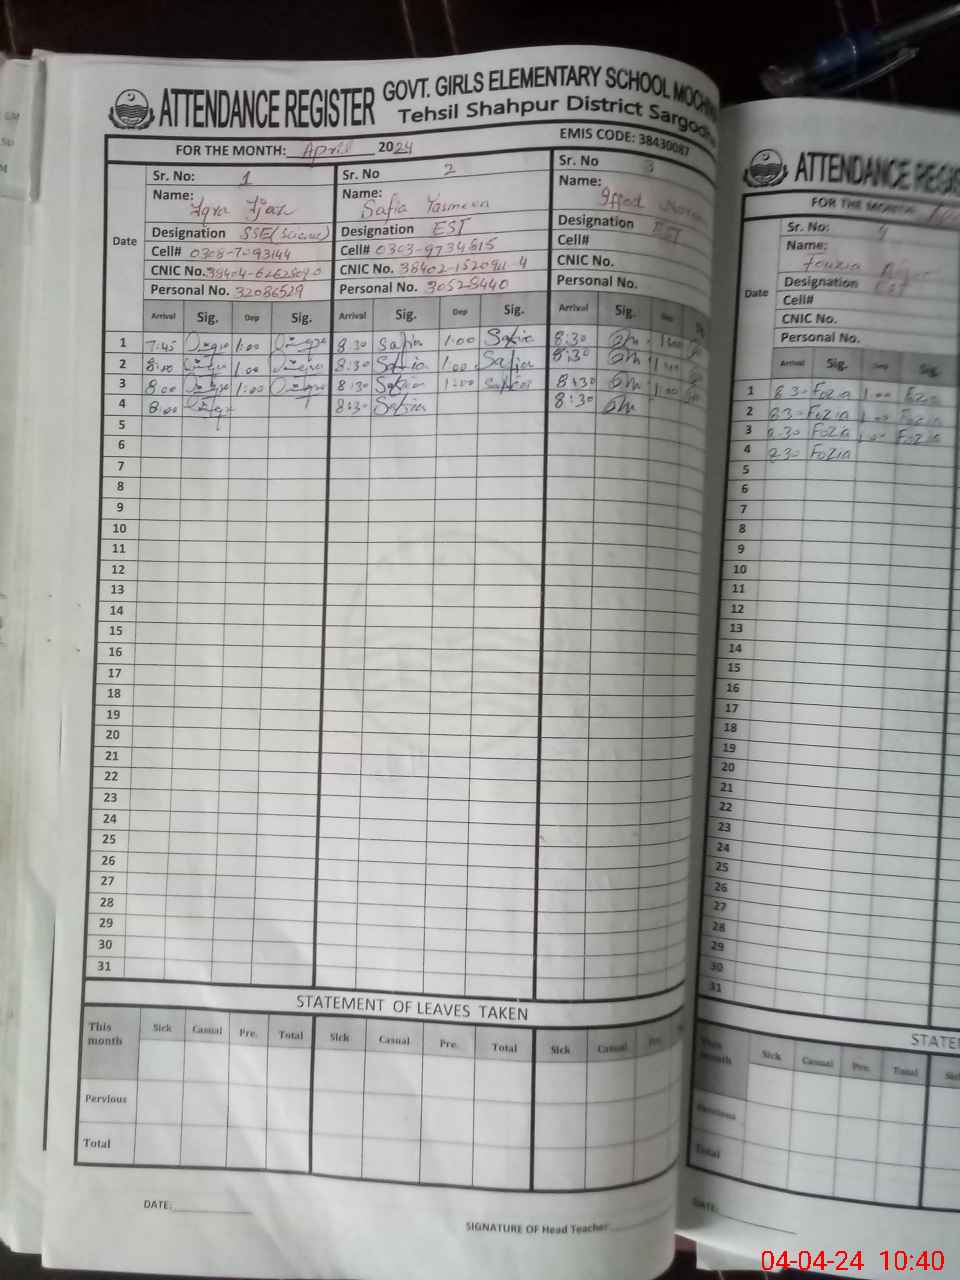 ATTENDANCE REGISTER GOVT. GIRLS ELEMENTARY SCHOOL
Tehsil Shahpur District Sargodha
EMIS CODE: 38430087
FOR THE MONTH: April 2024
Date
Sr. No: 1
Name:
Designation SSE(Science)
Cell# 0308-7093144
CNIC No.
Personal No. 32086529
Sr. No 2
Name: Safia Yasmeen
Designation EST
Cell# 0303-9734515
CNIC No.
Personal No. 30528440
Sr. No 3
Name:
Designation EST
Cell#
CNIC No.
Personal No.
Arrival Sig. Dep Sig. Arrival Sig. Dep Sig. Arrival Sig. Dep
1 7:45 1:00 8:30 Safia 1:00 Safia 8:30 1:00
2 8:00 1:00 8:30 Safia 1:00 Safia 8:30 1:00
3 8:00 1:00 8:30 Safia 1:00 Safia 8:30 1:00
4 8:00 8:30 Safia 8:30
5
6
7
8
9
10
11
12
13
14
15
16
17
18
19
20
21
22
23
24
25
26
27
28
29
30
31
STATEMENT OF LEAVES TAKEN
This month Sick Casual Pre. Total Sick Casual Pre. Total Sick Casual Pre.
Pervious
Total
DATE:
SIGNATURE OF Head Teacher
ATTENDANCE
FOR THE MONTH:
Date
Sr. No: 4
Name: Fouzia
Designation EST
Cell#
CNIC No.
Personal No.
Arrival Sig. Dep Sig.
1 8:30 Fozia 1:00 Fozia
2 8:30 Fozia 1:00 Fozia
3 8:30 Fozia 1:00 Fozia
4 8:30 Fozia
5
6
7
8
9
10
11
12
13
14
15
16
17
18
19
20
21
22
23
24
25
26
27
28
29
30
31
This month Sick Casual Pre. Total
Pervious
Total
DATE:
04-04-24 10:40